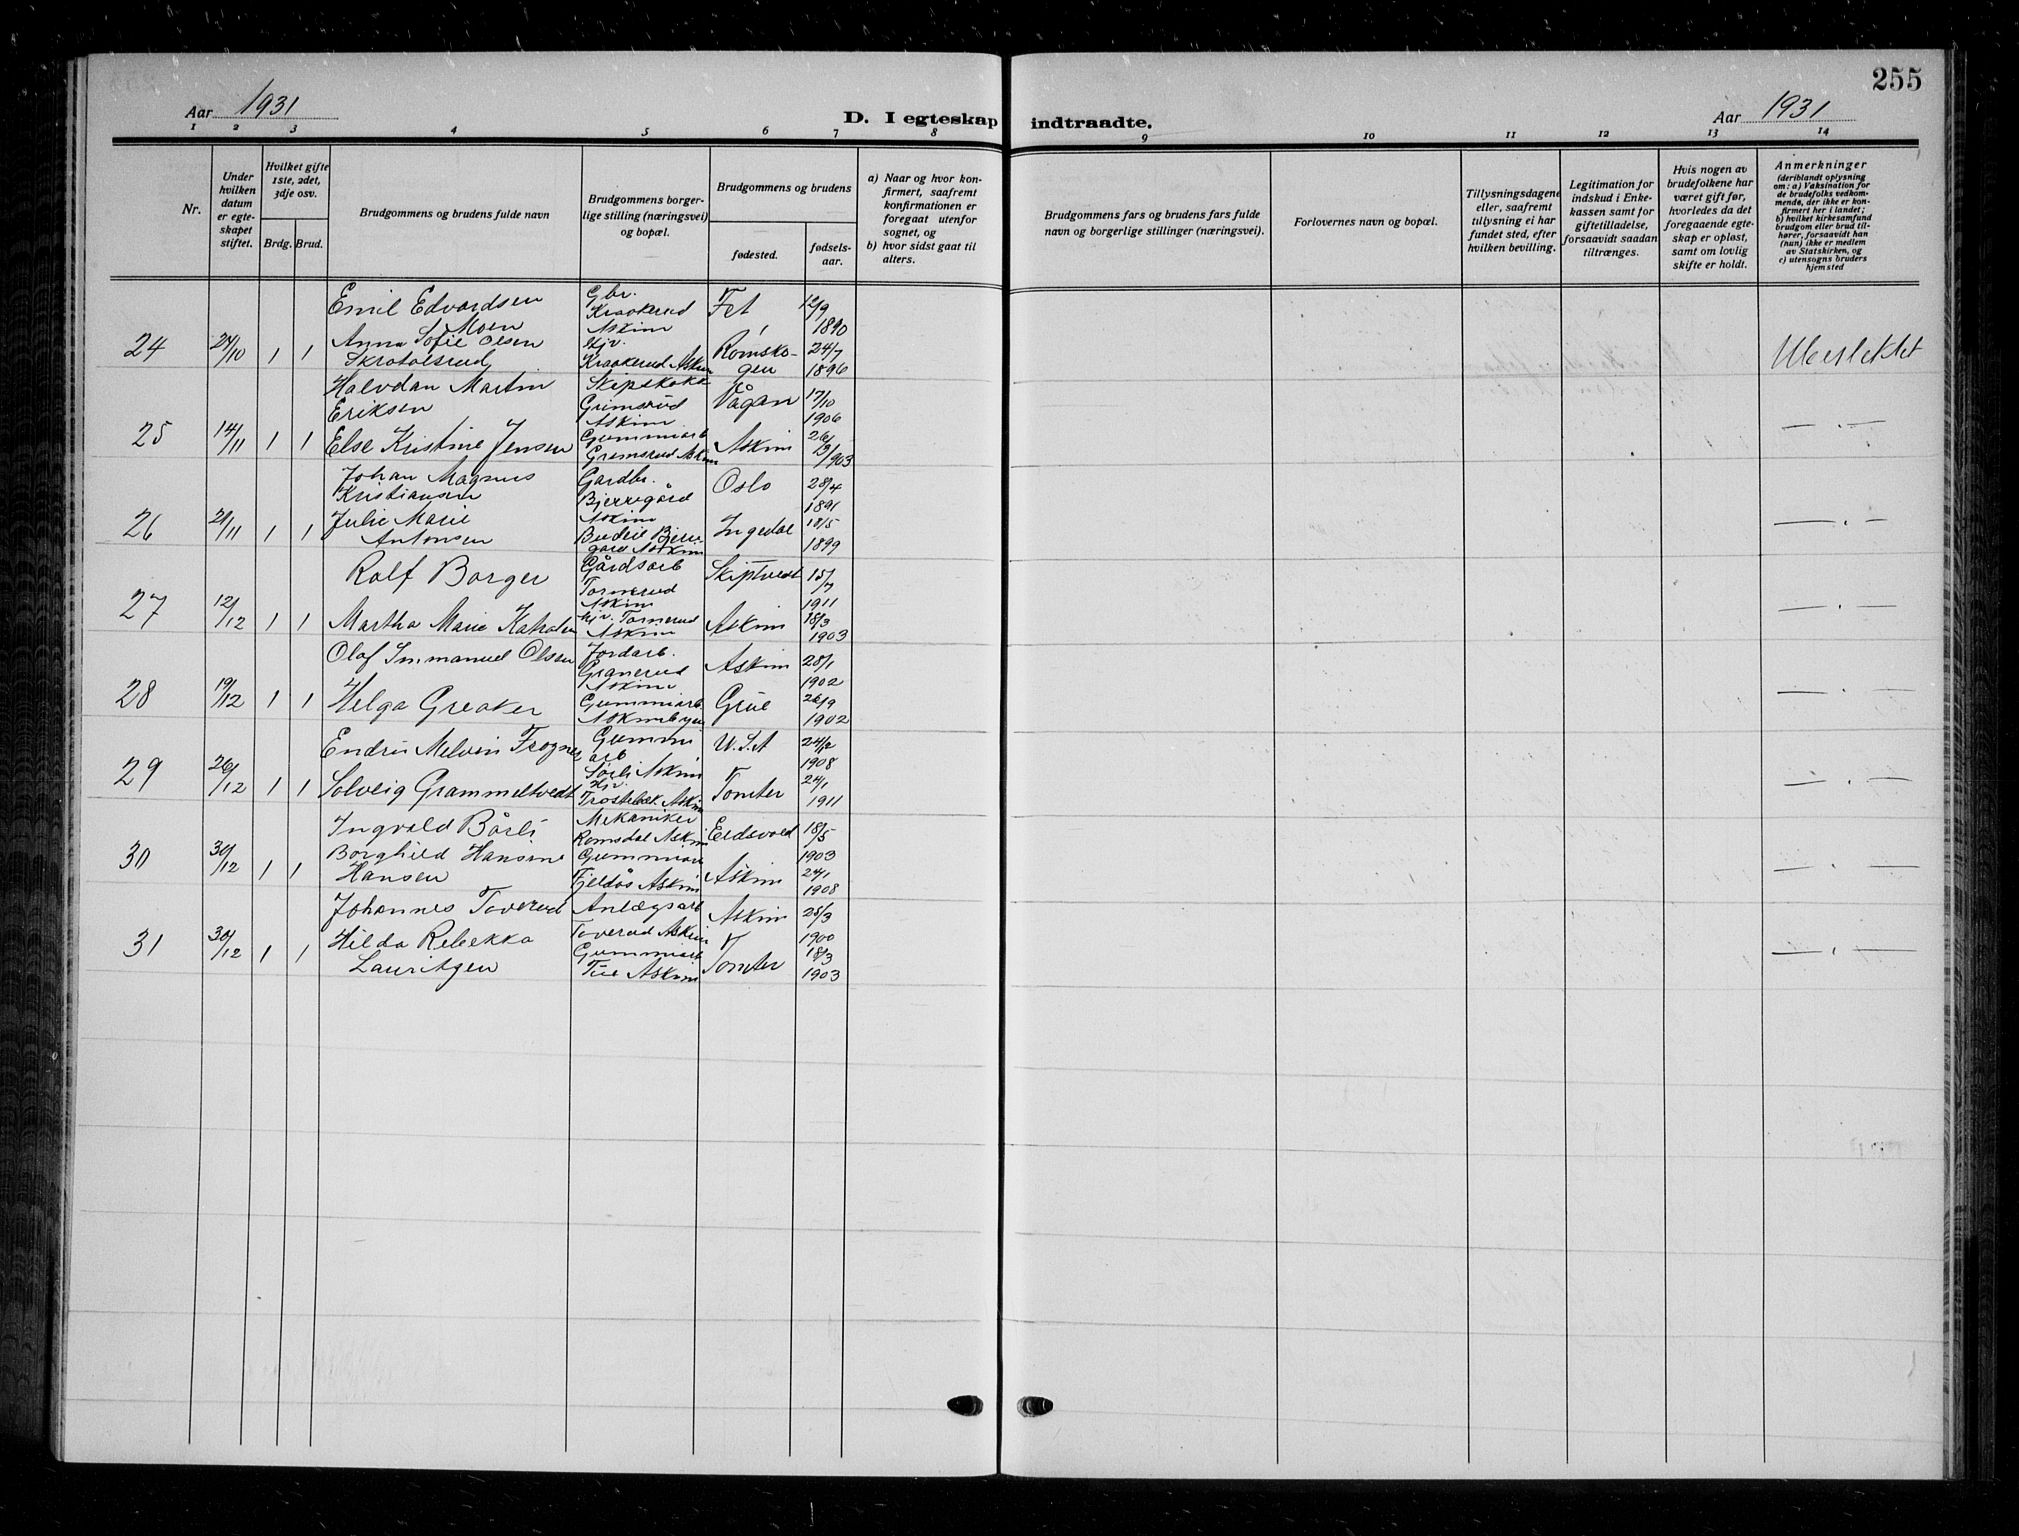 255
Aar 1931
D. I egteskap indtraadte.
Aar 1931
1 2 3 4 5 6 7 8 9 10 11 12 13 14
Nr.
Under hvilken datum er egteskapet stiftet.
Hvilket gifte 1ste, 2det, 3dje osv.
Brdg. Brud.
Brudgommens og brudens fulde navn
Brudgommens borgerlige stilling (næringsvei) og bopæl.
Brudgommens og brudens
fødested.
fødselsaar.
a) Naar og hvor konfirmert, saafremt konfirmationen er foregaat utenfor sognet, og
b) hvor sidst gaat til alters.
Brudgommens fars og brudens fars fulde navn og borgerlige stillinger (næringsvei).
Forlovernes navn og bopæl.
Tillysningsdagene eller, saafremt tillysning ei har fundet sted, efter hvilken bevilling.
Legitimation for indskud i Enkekassen samt for giftetilladelse, forsaavidt saadan tiltrænges.
Hvis nogen av brudefolkene har været gift før, hvorledes da det foregaaende egteskap er opløst, samt om lovlig skifte er holdt.
Anmerkninger
(deriblandt oplysning om: a) Vaksination for de brudefolks vedkommende, der ikke er konfirmert her i landet; b) hvilket kirkesamfund brudgom eller brud tilhører, forsaavidt han (hun) ikke er medlem av Statskirken, og c) utensogns bruders hjemsted
Emil Edvardsen Gbr. Fet 12/9
Moen Kraakerud Askim 1890
24 24/10 1 1 Anna Sofie Olsen Hjv. Romsko- 24/7
Skratoelsrud Kraakerud Askim gen 1896
Halvdan Martin Skipskokk Vågan 17/10
Eriksen Grimsrud Askim 1906
25 14/11 1 1 Else Kristine Jensen Gummiarb Askim 26/3
Grimsrud Askim 1903
— . —
Johan Magnus Gardbr. Oslo 28/4
Kristiansen Bjerregård Askim 1891
26 21/11 1 1 Julie Marie Budeie Bjerre- Ingedal 18/5
Antonsen gård Askim 1899
— . —
Rolf Borger Gårdsarb Skiptvedt 15/7
Tomerud Askim 1911
27 12/12 1 1 Martha Marie Hjv. Tomerud Askim 18/3
Askim 1903
— . —
Olaf Immanuel Olsen Jordarb. Askim 28/1
Granerud Askim 1902
28 19/12 1 1 Helga Greaker Gummiarb. Grue 26/9
Askimbyen 1902
— . —
Endre Melvin Frogner Gummiarb U.S.A 24/2
Sørli Askim 1908
29 26/12 1 1 Solveig Grammeltvedt Hjv. Tomter 24/1
Trostebæk Askim 1911
— . —
Ingvald Bårli Mekaniker Eidsvold 18/5
Romsdal Askim 1903
30 30/12 1 1 Borghild Hansine Gummiarb Askim 24/1
Hansen Fjeldås Askim 1908
— . —
Johannes Toverud Anlægsarb Askim 25/3
Toverud Askim 1900
31 30/12 1 1 Hilda Rebekka Gummiarb Tomter 18/3
Lauritzen Askim 1903
— . —